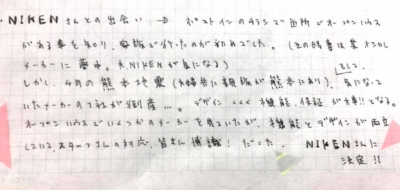 NIKENさんとの出会い → ポストインのチラシで近所でオープンハウス
がある事を知り、家族で行ったのが初めでした。(この時書は某
メーカーに夢中。夫NIKENが気になる)
そして、
しかし、4月の熊本地震(夫婦共に親族が熊本にあり)、気になって
いたメーカーの1社が倒産…。デザイン<<<機能、保証が大事!!となる。
オープンハウスでいくつかのメーカーを見ていたが、機能とデザインが両立
しており、スタッフさんの対応、皆さん博識!だった。 NIKENさんに
決定!!